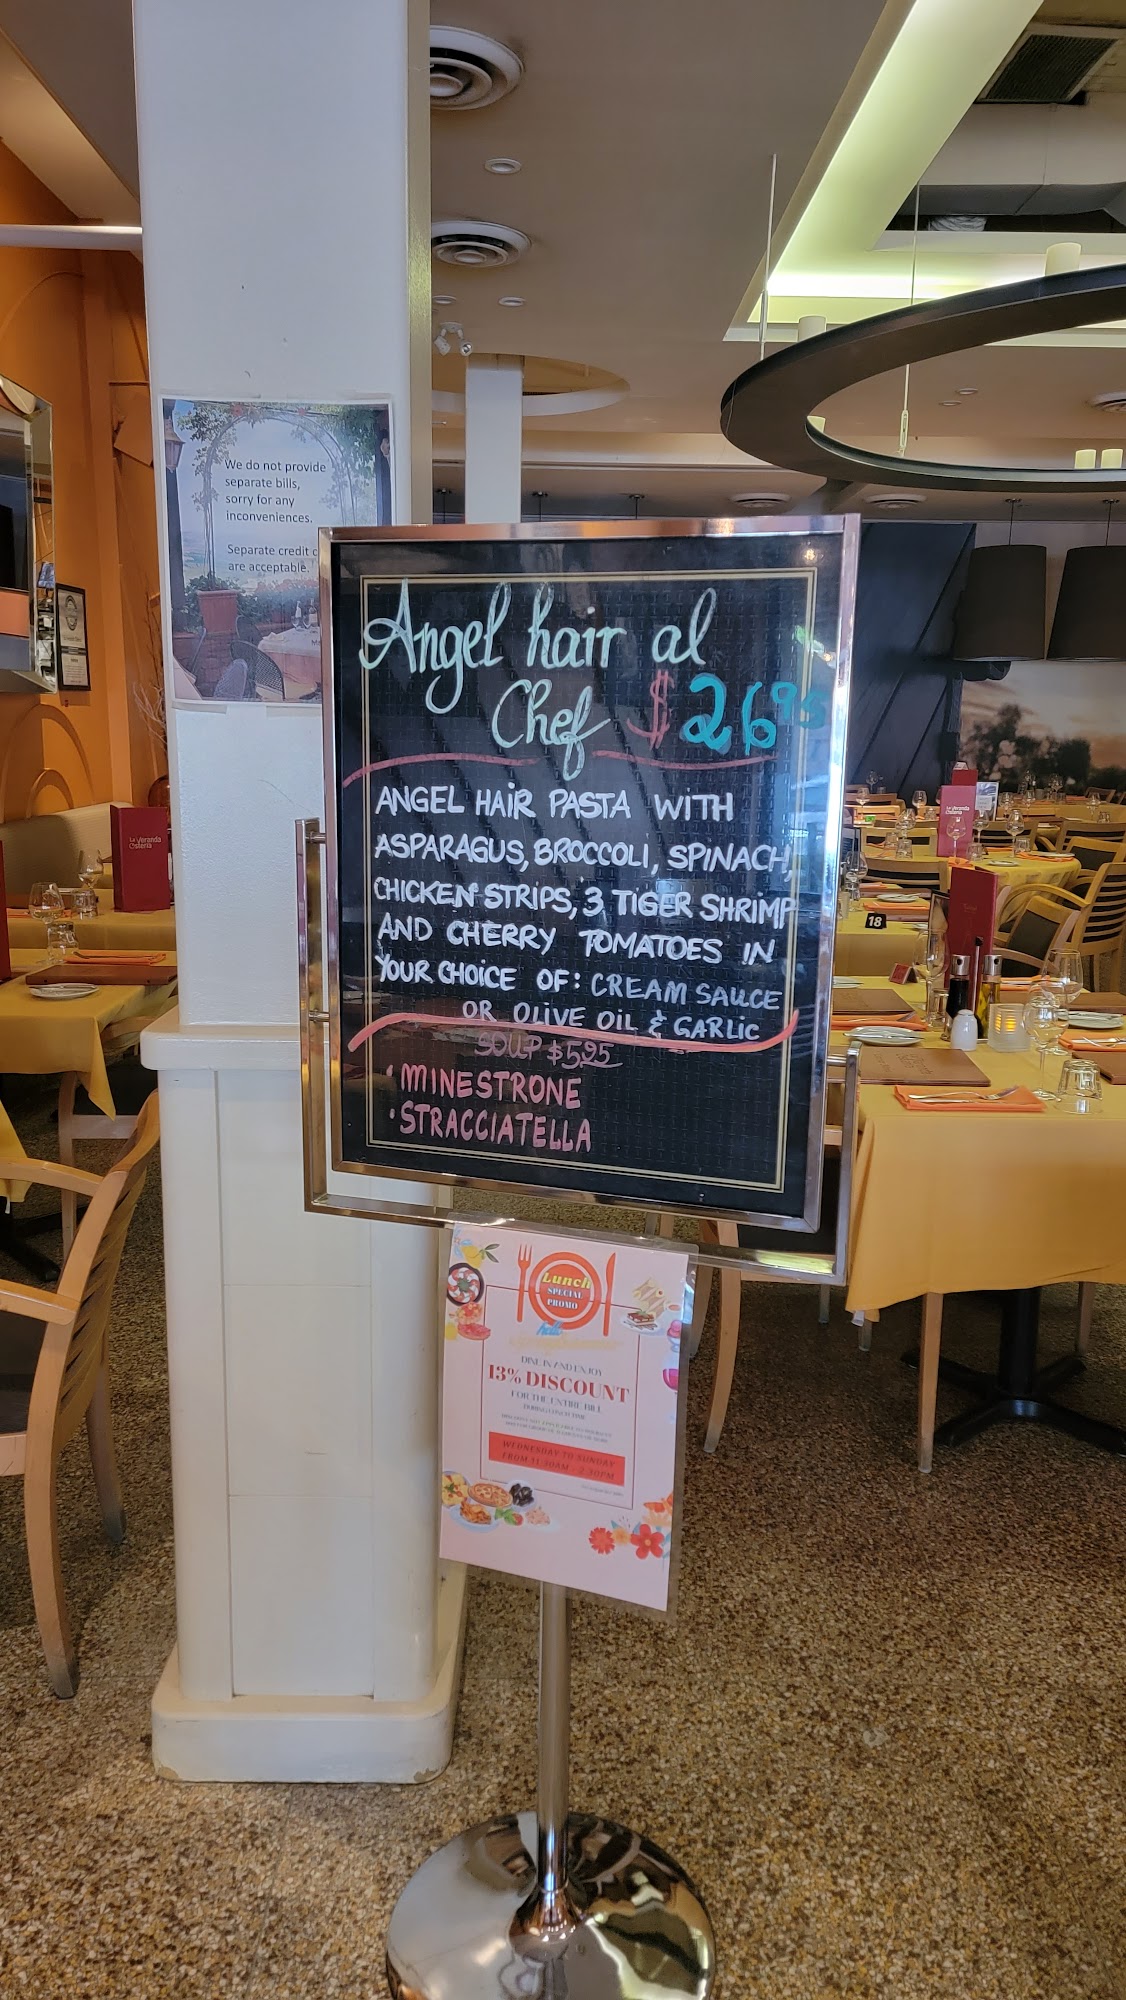 We do not provide
separate bills,
sorry for any
inconveniences.
Separate credit
are acceptable.
Angel hair al
Chef $26 95
ANGEL HAIR PASTA WITH
ASPARAGUS, BROCCOLI, SPINACH,
CHICKEN STRIPS, 3 TIGER SHRIMP
AND CHERRY TOMATOES IN
YOUR CHOICE OF: CREAM SAUCE
OR OLIVE OIL & GARLIC
SOUP $5.95
• MINESTRONE
• STRACCIATELLA
Lunch
SPECIAL
PROMO
hello
DINE IN AND ENJOY
13% DISCOUNT
FOR THE ENTIRE BILL
DURING LUNCH TIME
WEDNESDAY TO SUNDAY
FROM 11:30AM - 2:30PM
La Veranda
Osteria
La Veranda
Osteria
18